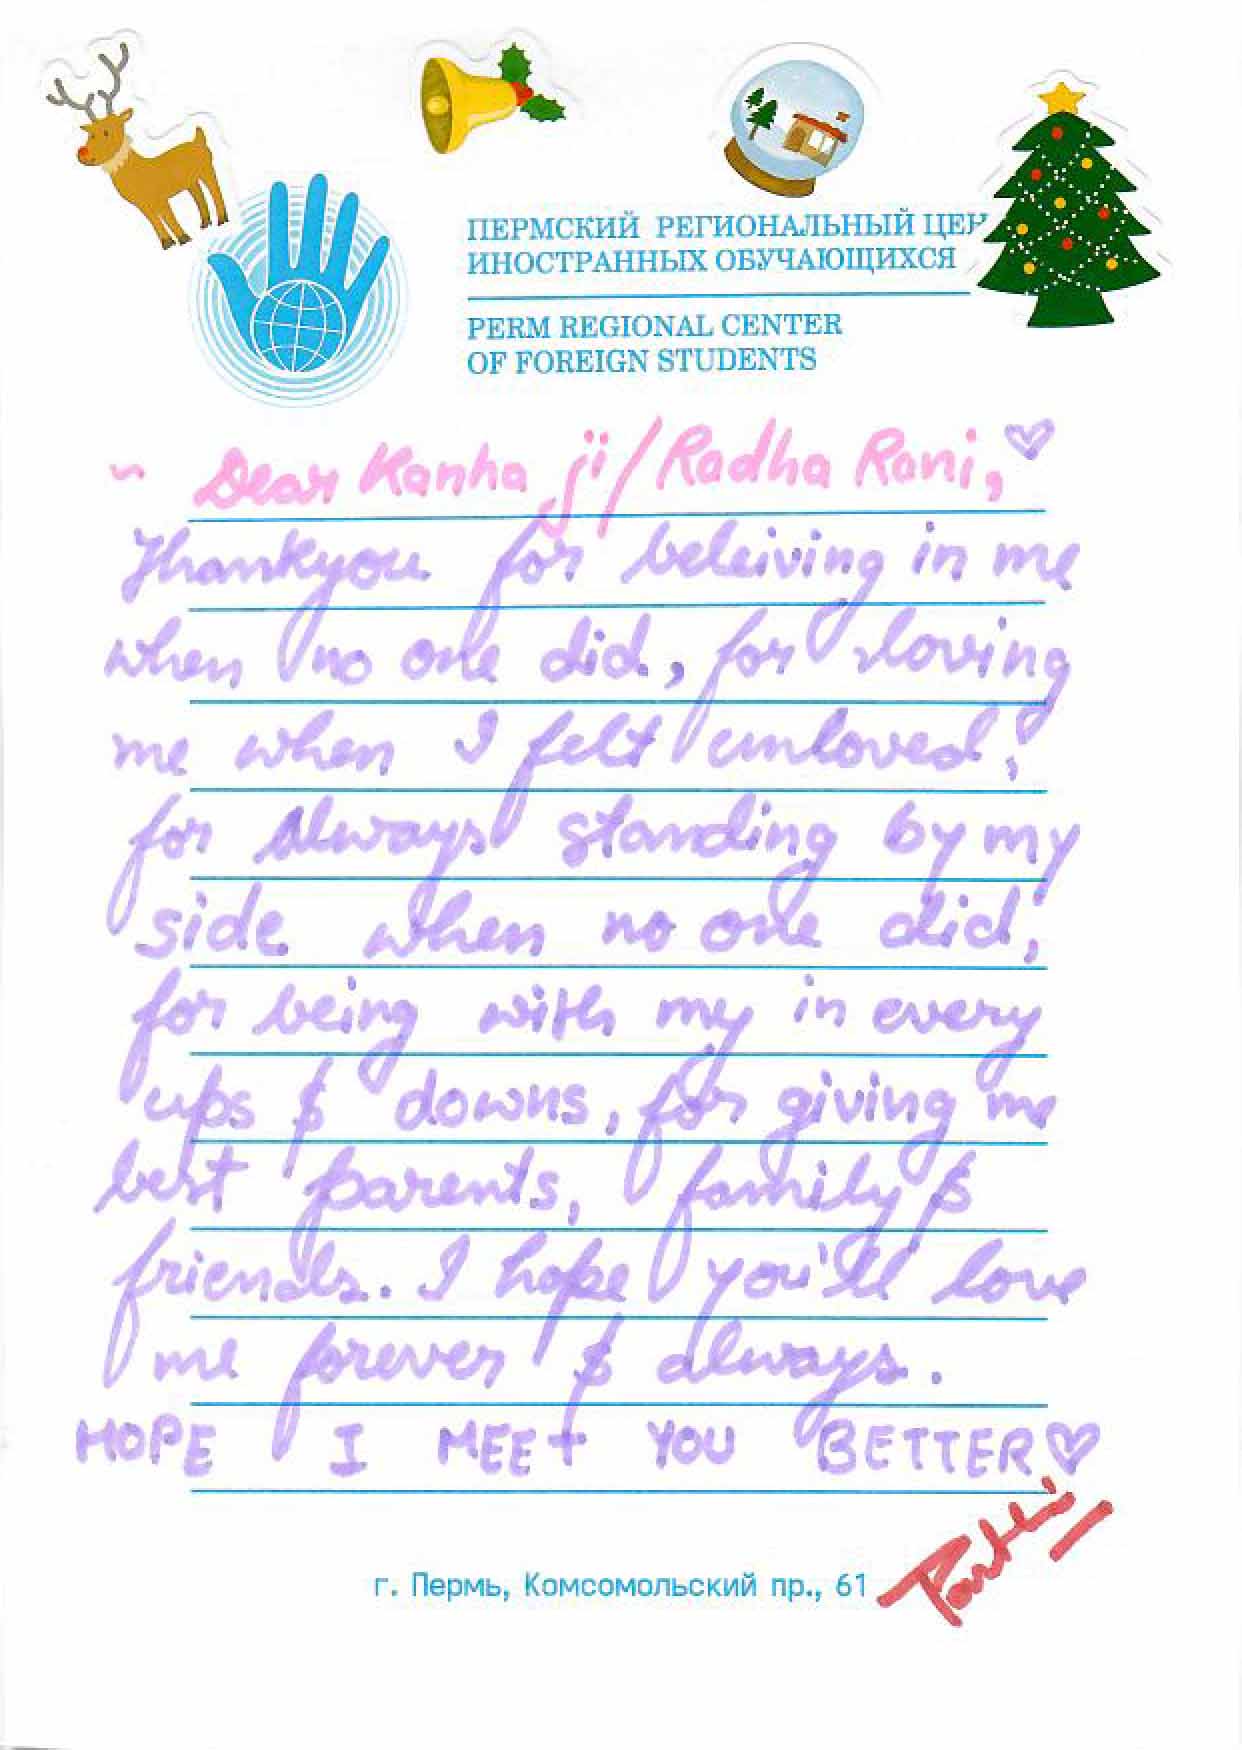 ПЕРМСКИЙ РЕГИОНАЛЬНЫЙ ЦЕН
ИНОСТРАННЫХ ОБУЧАЮЩИХСЯ
PERM REGIONAL CENTER
OF FOREIGN STUDENTS
~ Dear Kanha ji/Radha Rani, ♡
Thankyou for beleiving in me
when no one did, for loving
me when I felt unloved,
for always standing by my
side when no one did,
for being with my in every
ups & downs, for giving me
best parents, family &
friends. I hope you'll love
me forever & always.
HOPE I MEET YOU BETTER♡
г. Пермь, Комсомольский пр., 61